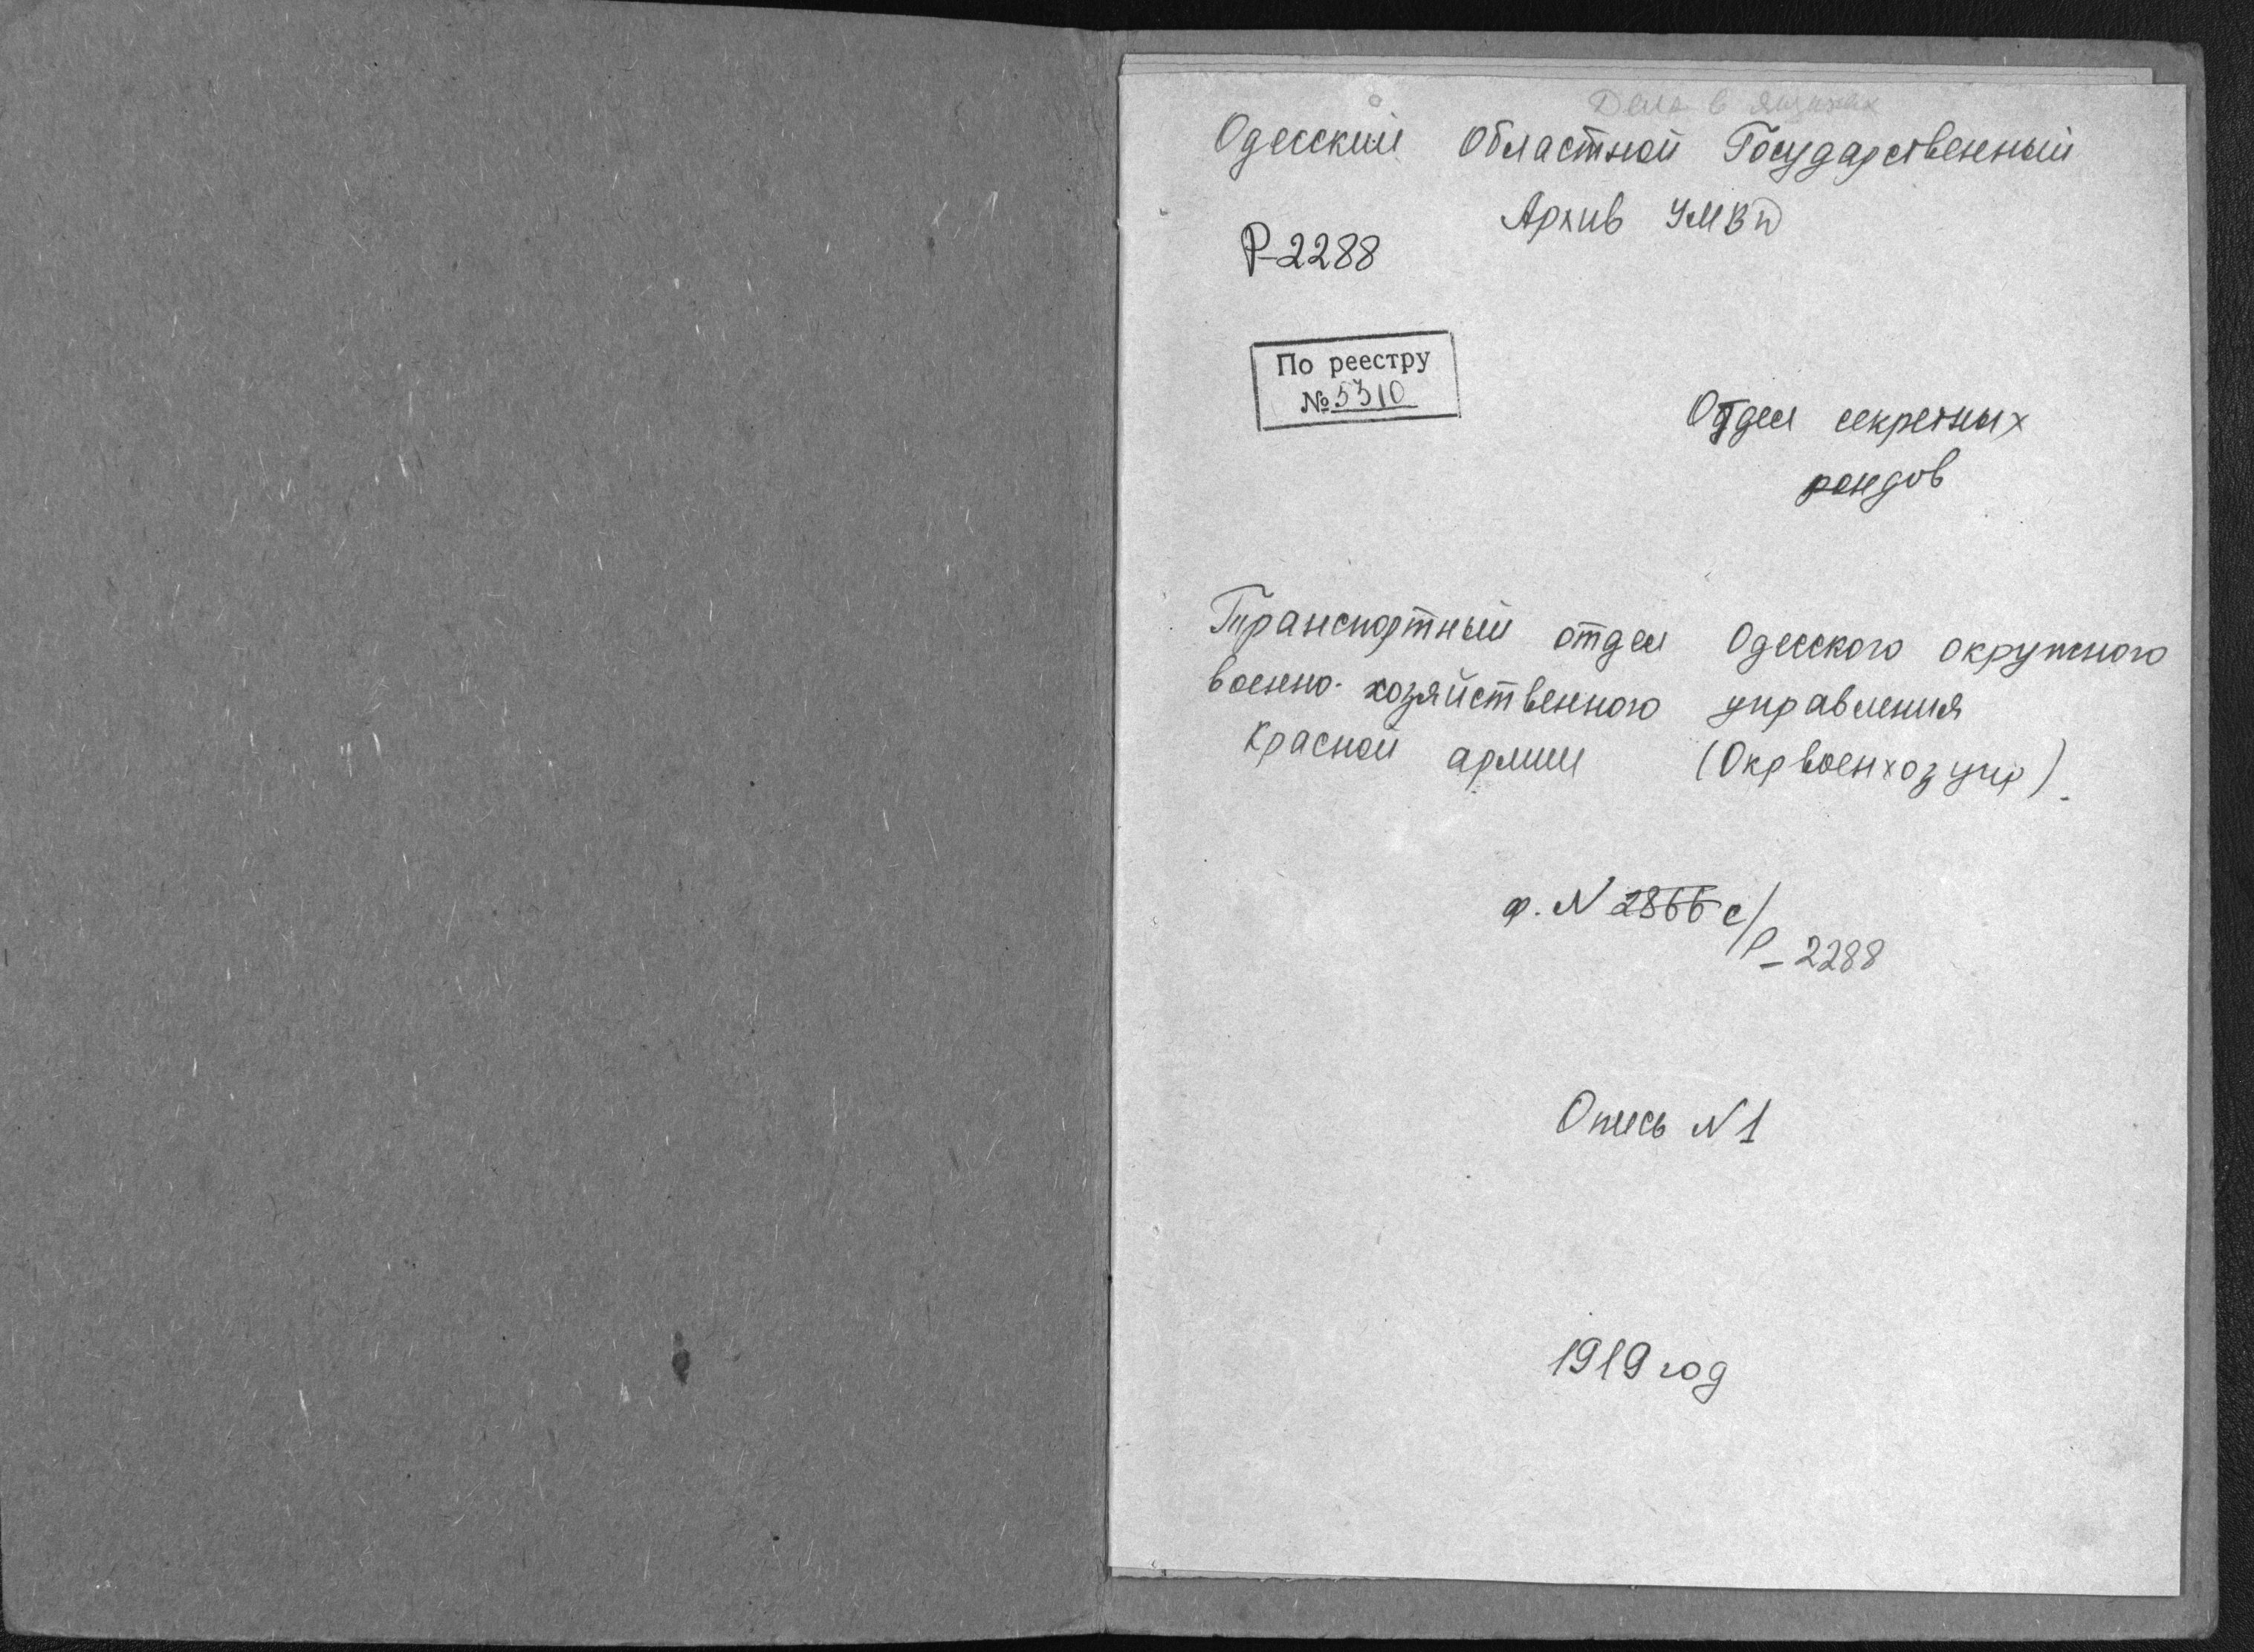 Дела в ящиках
Одесский Областной Государственный
Архив УМВД
Р-2288
По реестру
№ 5310
Отдел секретных
фондов
Транспортный отдел Одесского окружного
военно-хозяйственного управления
Красной армии (Окрвоенхозупр).
ф. N 2866 с/
Р-2288
Опись N 1
1919 год